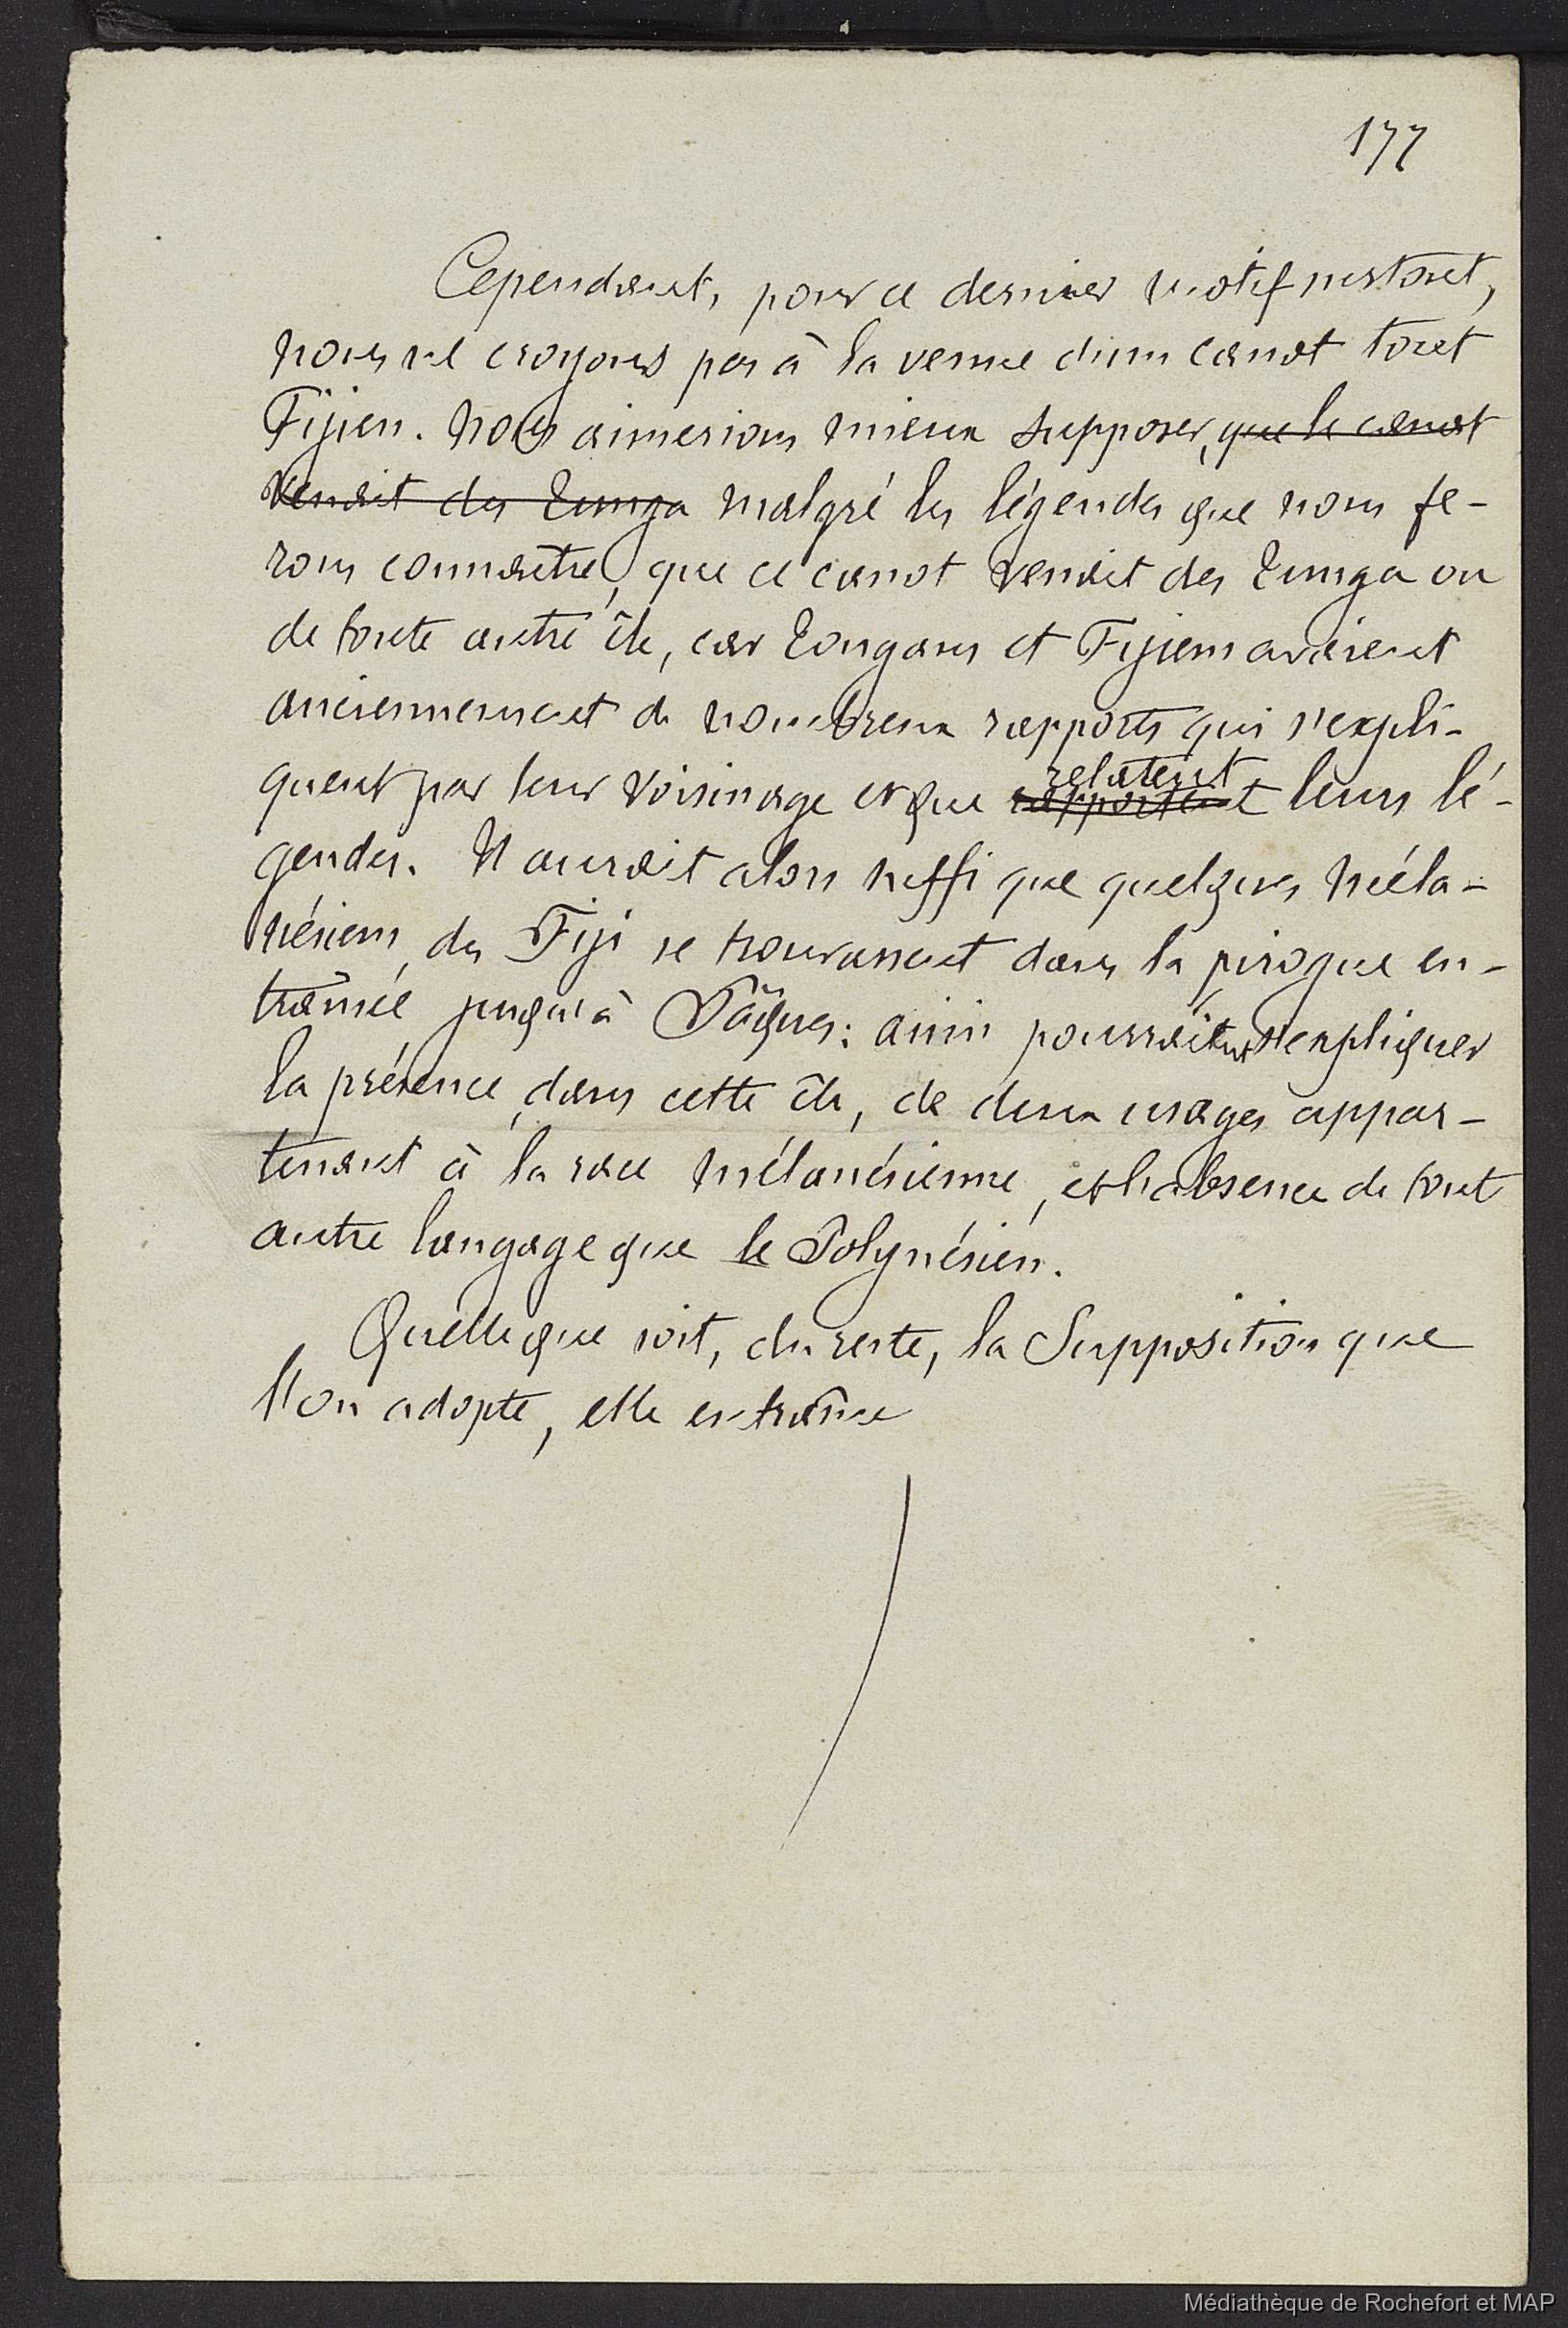 177
Cependant, pour ce dernier motif surtout,
nous ne croyons pas à la venue d'un canot tout
Fijien. Nous aimerions mieux supposer, que le canot
venait des Tunga malgré les légendes que nous fe-
rons connaître, que ce canot venait des Tunga ou
de toute autre île, car Tongans et Fijiens avaient
anciennement de nombreux rapports qui s'expli-
quent par leur voisinage et que
relatent
rapportent leurs lé-
gendes. Il aurait alors suffi que quelques Méla-
nésiens des Fiji se trouvassent dans la pirogue en-
traînée jusqu'à Pâques : ainsi pourraient s'expliquer
la présence, dans cette île, de deux usages appar-
tenant à la race Mélanésienne, et l'absence de tout
autre langage que le Polynésien.
Quelle que soit, du reste, la Supposition que
l'on adopte, elle entraîne
Médiathèque de Rochefort et MAP